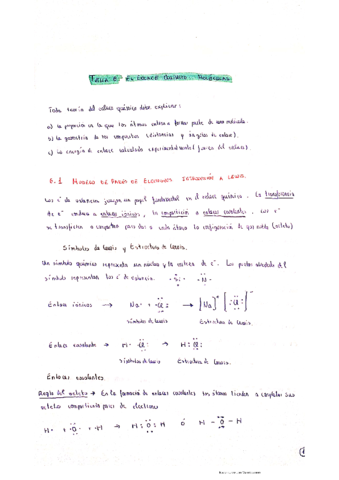 TEMA 6. EL ENLACE QUÍMICO: MOLÉCULAS
Toda teoría del enlace químico debe explicar:
a) La proporción en la que los átomos entran a formar parte de una molécula.
b) La geometría de los compuestos (distancias y ángulos de enlace).
c) La energía de enlace calculada experimentalmente (fuerza del enlace)
6.1 MODELO DE PARES DE ELECTRONES. INTRODUCCIÓN A LEWIS.
Los e⁻ de valencia juegan un papel fundamental en el enlace químico. La transferencia
de e⁻ conduce a enlaces iónicos, la compartición a enlaces covalentes. Los e⁻
se transfieren o comparten para dar a cada átomo la configuración de gas noble (octeto)
Símbolos de Lewis y Estructura de Lewis.
Un símbolo químico representa un núcleo y los e⁻. Los puntos alrededor del
símbolo representan los e⁻ de valencia. ·Si· ·N·
Enlace iónico → Na· + ·Cl: → [Na]⁺ [:Cl:]⁻
símbolos de Lewis Estructura de Lewis.
Enlace covalente → H· ·Cl: → H:Cl:
símbolos de Lewis Estructura de Lewis.
Enlaces covalentes.
Regla del octeto → En la formación de enlaces covalentes los átomos tienden a completar sus
octetos compartiendo pares de electrones
H· + ·O· + ·H → H:O:H ó H-O-H
1